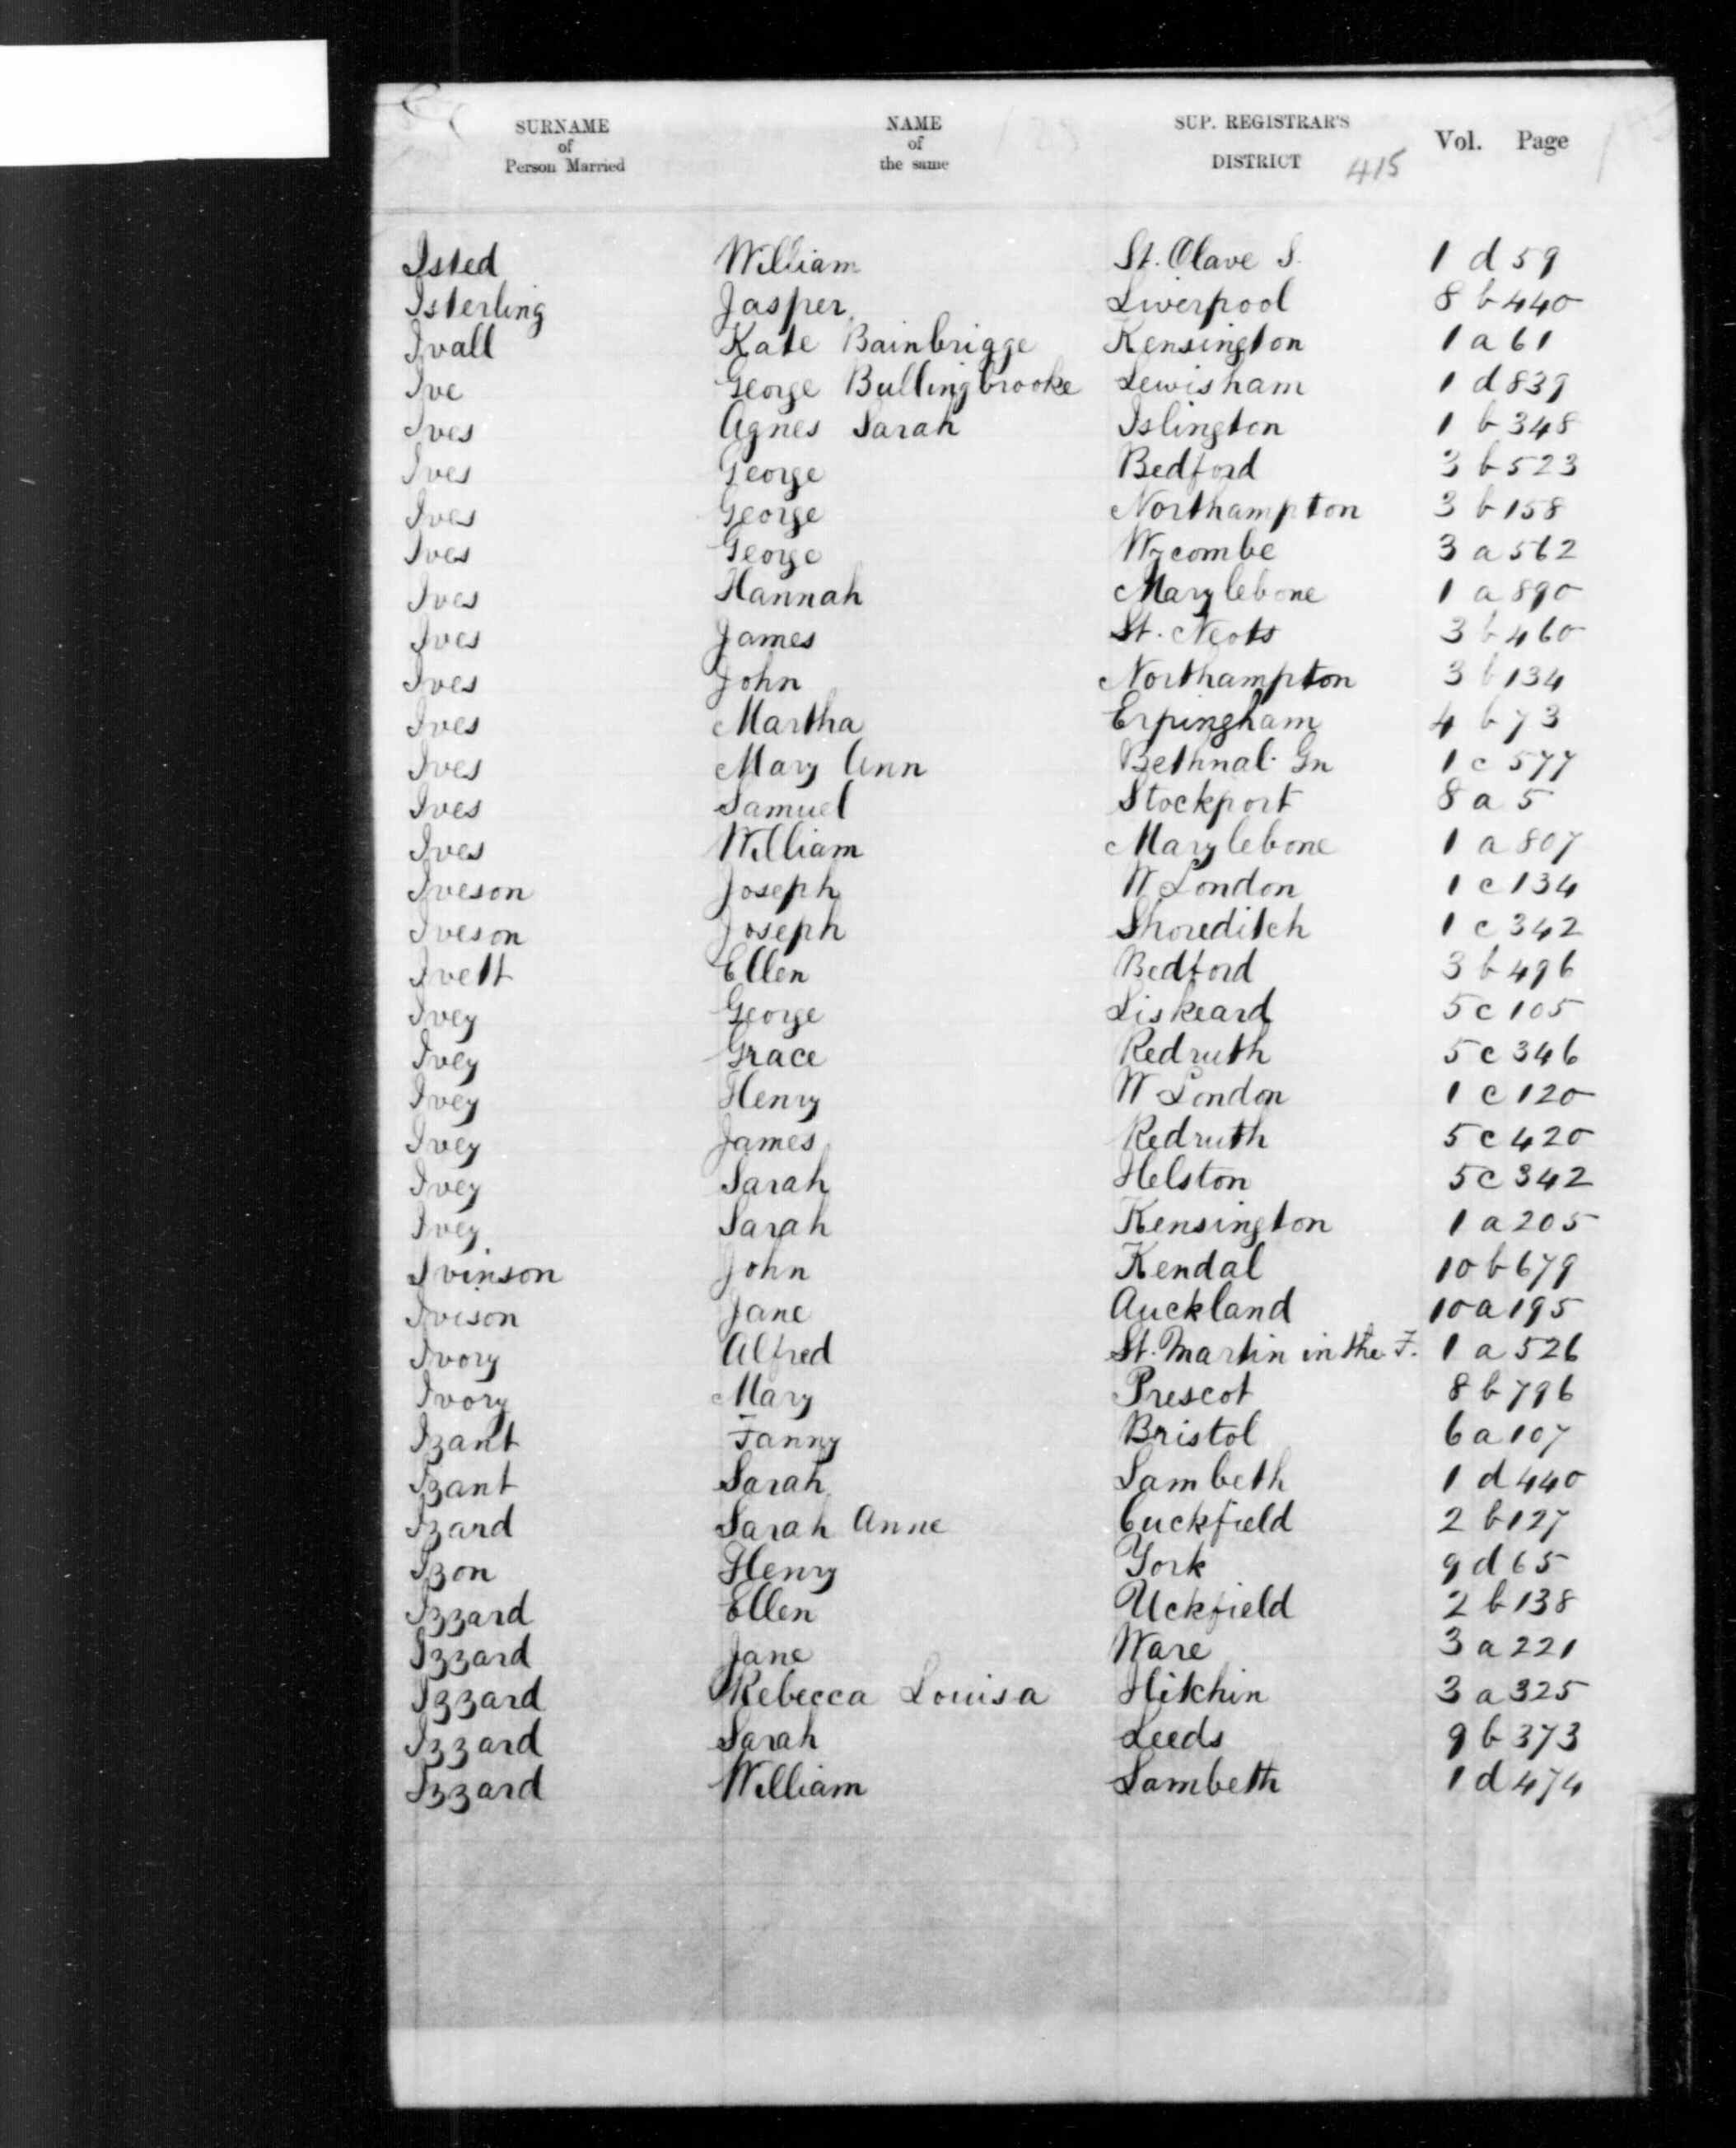 SURNAME of Person Married NAME of the same SUP. REGISTRAR'S DISTRICT Vol. Page
415
Isted William St. Olave S. 1 d 59
Isterling Jasper Liverpool 8 b 440
Ivall Kate Bainbrigge Kensington 1 a 61
Ive George Bullingbrooke Lewisham 1 d 839
Ives Agnes Sarah Islington 1 b 348
Ives George Bedford 3 b 523
Ives George Northampton 3 b 158
Ives George Wycombe 3 a 562
Ives Hannah Marylebone 1 a 890
Ives James St. Neots 3 b 460
Ives John Northampton 3 b 134
Ives Martha Erpingham 4 b 73
Ives Mary Ann Bethnal Gn 1 c 577
Ives Samuel Stockport 8 a 5
Ives William Marylebone 1 a 807
Iveson Joseph W London 1 c 134
Iveson Joseph Shoreditch 1 c 342
Ivett Ellen Bedford 3 b 496
Ivey George Liskeard 5 c 105
Ivey Grace Redruth 5 c 346
Ivey Henry W London 1 c 120
Ivey James Redruth 5 c 420
Ivey Sarah Helston 5 c 342
Ivey Sarah Kensington 1 a 205
Ivinson John Kendal 10 b 679
Ivison Jane Auckland 10 a 195
Ivory Alfred St. Martin in the F. 1 a 526
Ivory Mary Prescot 8 b 796
Izant Fanny Bristol 6 a 107
Izant Sarah Lambeth 1 d 440
Izard Sarah Anne Cuckfield 2 b 127
Izon Henry York 9 d 65
Izzard Ellen Uckfield 2 b 138
Izzard Jane Ware 3 a 221
Izzard Rebecca Louisa Hitchin 3 a 325
Izzard Sarah Leeds 9 b 373
Izzard William Lambeth 1 d 474